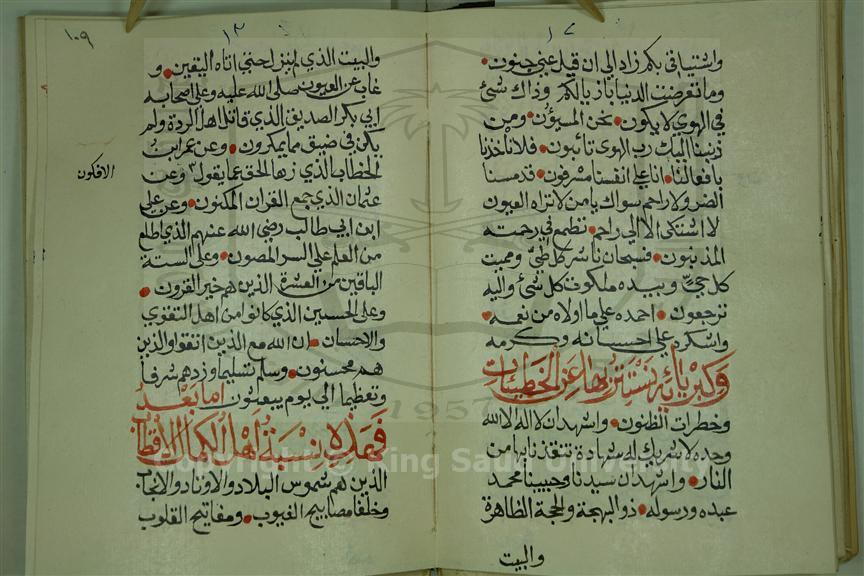 ١٢
واشتياقي بكم زاد الى ان قيل عني جنون
وما تعرضت الدنيا بازيالكم وذاك شئ
في الهوي لا يكون نحن المسيؤن ومن
ذنبنا اليك رب الهوى تائبون فلا تاخذنا
بافعالنا انا علي انفسنا مسرفون قد مسنا
الضر ولا راحم سواك يا من لا تراه العيون
لا اشتكى الا الي راحم تطمع في رحمته
المذنبون فسبحان ناشر كل طئ ومميت
كل حيّ وبيده ملكوت كل شئ واليه
ترجعون احمده علي ما اولاه من نعمه
واشكره علي احسانه وكرمه
وكبريائه تستنزهها عن الخطيئات
وخطرات الظنون واشهد ان لا اله الا الله
وحده لا شريك له شهادة تنقذنا بها من
النار واشهد ان سيدنا وحبيبنا محمد
عبده ورسوله ذو البهجة والحجة الظاهرة
والبيت
١٠٩
١٣
والبيت الذي لم يزل حتى اتاه اليقين و
غاب عن العيون صلى الله عليه وعلى اصحابه
ابي بكر الصديق الذي قاتل اهل الردة ولم
يكن في ضيق مما يمكرون وعن عمر ابن
الخطاب الذي زها الحق عما يقول وعن
الافكون
عثمان الذي جمع القران المكنون وعن علي
ابن ابي طالب رضي الله عنهم الذي اطلع
من العلم علي السر المصون وعلى الستة
الباقين من العشرة الذين هم خير القرون
وعلى الحسنين الذي كانو امن اهل التقوي
والاحسان ان الله مع الذين اتقوا والذين
هم محسنون وسلم تسليما وزدهم شرفا
وتعظيما الي يوم يبعثون اما بعد
فهذه نسبة اهل الكمال الاقطاب
الذين هم شموس البلاد والاوتاد والانجاب
وخلفا مصابيح الغيوب ومفاتيح القلوب
1957
Copyright © King Saud University